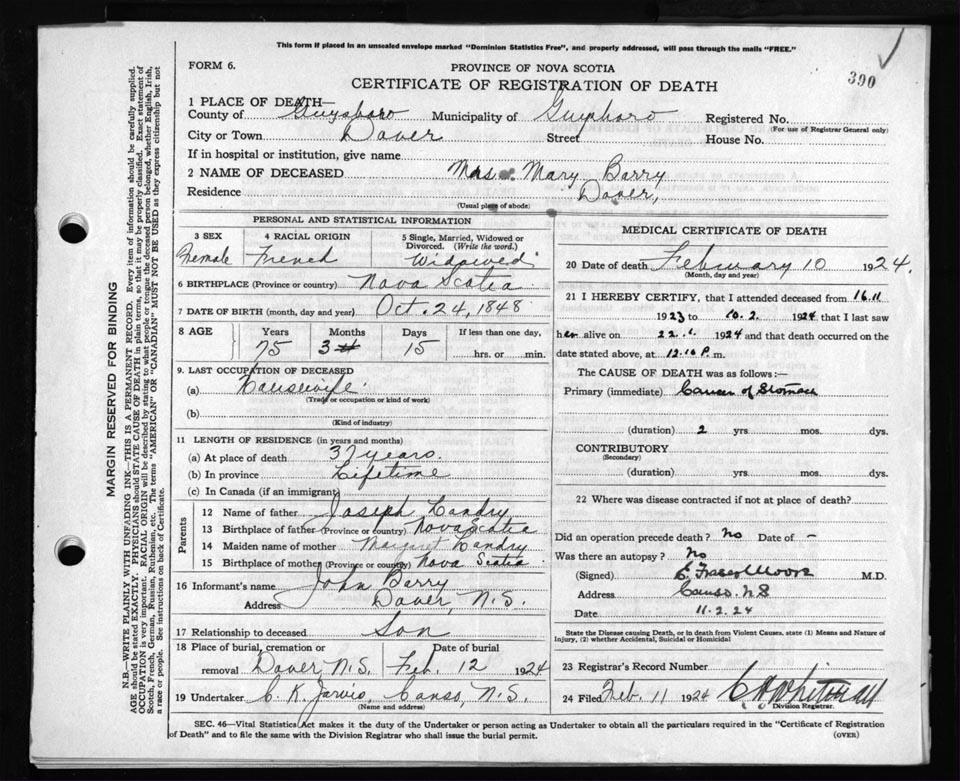 This form if placed in an unsealed envelope marked "Dominion Statistics Free", and properly addressed, will pass through the mails "FREE."
FORM 6.
PROVINCE OF NOVA SCOTIA
390
CERTIFICATE OF REGISTRATION OF DEATH
1 PLACE OF DEATH—
County of Guysboro Municipality of Guysboro Registered No.
(For use of Registrar General only)
City or Town Dover Street House No.
If in hospital or institution, give name
2 NAME OF DECEASED Mrs. Mary Barry
Residence Dover,
(Usual place of abode)
PERSONAL AND STATISTICAL INFORMATION
3 SEX 4 RACIAL ORIGIN 5 Single, Married, Widowed or Divorced. (Write the word.)
Female French Widowed
6 BIRTHPLACE (Province or country) Nova Scotia
7 DATE OF BIRTH (month, day and year) Oct. 24, 1848
8 AGE Years Months Days If less than one day,
75 3 15 hrs. or min.
9. LAST OCCUPATION OF DECEASED
(a) Housewife
(Trade or occupation or kind of work)
(b)
(Kind of industry)
11 LENGTH OF RESIDENCE (in years and months)
(a) At place of death 37 years.
(b) In province Lifetime
(c) In Canada (if an immigrant)
Parents
12 Name of father Joseph Landry
13 Birthplace of father (Province or country) Nova Scotia
14 Maiden name of mother Margaret Landry
15 Birthplace of mother (Province or country) Nova Scotia
16 Informant's name John Barry
Address Dover, N.S.
17 Relationship to deceased Son
18 Place of burial, cremation or Date of burial
removal Dover N.S. Feb. 12 1924
19 Undertaker C. K. Jarvis, Canso, N.S.
(Name and address)
MEDICAL CERTIFICATE OF DEATH
20 Date of death February 10 1924.
(Month, day and year)
21 I HEREBY CERTIFY, that I attended deceased from 16.11
1923 to 10.2. 1924 that I last saw
her alive on 22.1. 1924 and that death occurred on the
date stated above, at 12.10 P. m.
The CAUSE OF DEATH was as follows:—
Primary (immediate) Cancer of Stomach
(duration) 2 yrs. mos. dys.
CONTRIBUTORY
(Secondary)
(duration) yrs. mos. dys.
22 Where was disease contracted if not at place of death?
Did an operation precede death? No Date of –
Was there an autopsy? No
(Signed) C. Fraser Moore M.D.
Address Canso. N S
Date 11.2.24
State the Disease causing Death, or in death from Violent Causes, state (1) Means and Nature of Injury, (2) whether Accidental, Suicidal or Homicidal
23 Registrar's Record Number
24 Filed Feb. 11 1924
Division Registrar.
SEC. 46—Vital Statistics Act makes it the duty of the Undertaker or person acting as Undertaker to obtain all the particulars required in the "Certificate of Registration
of Death" and to file the same with the Division Registrar who shall issue the burial permit. (OVER)
MARGIN RESERVED FOR BINDING
N.B.—WRITE PLAINLY WITH UNFADING INK—THIS IS A PERMANENT RECORD. Every item of information should be carefully supplied.
AGE should be stated EXACTLY. PHYSICIANS should STATE CAUSE OF DEATH in plain terms, so that it may be properly classified. Exact statement of
OCCUPATION is very important. RACIAL ORIGIN will be described by stating to what people or tongue the deceased person belonged, whether English, Irish,
Scotch, French, German, Russian, Ruthenian, etc. The terms "AMERICAN" OR "CANADIAN" MUST NOT BE USED as they express citizenship but not
a race or people. See instructions on back of Certificate.